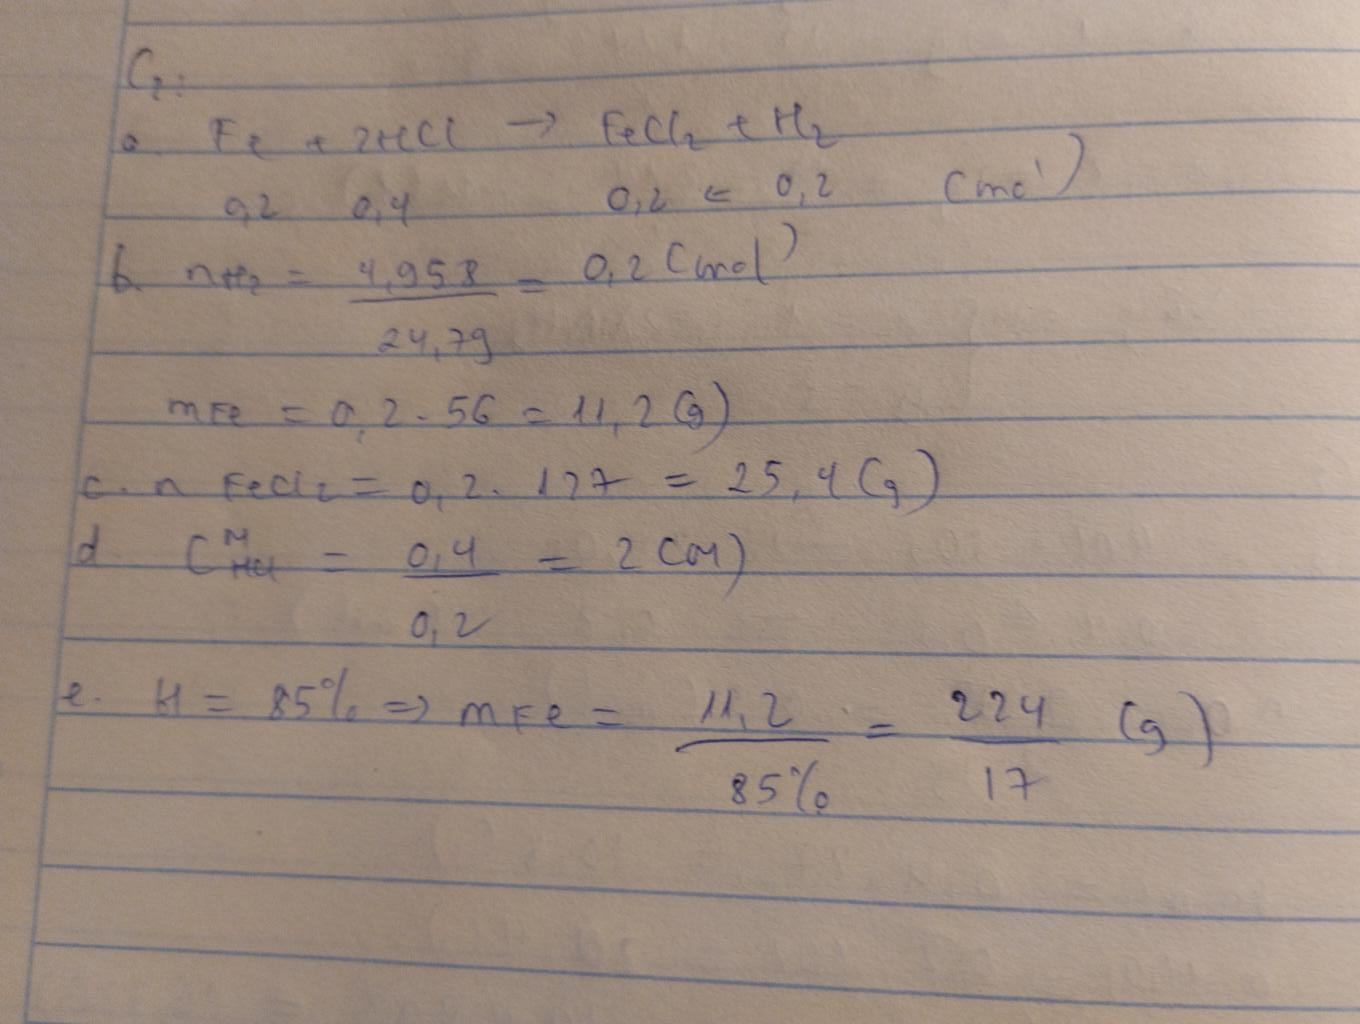 C2:
a Fe + 2HCl → FeCl2 + H2
0,2 0,4 0,2 ← 0,2 (mol)
b. nH2 = 4,958 / 24,79 = 0,2 (mol)
mFe = 0,2 . 56 = 11,2 (g)
c. n FeCl2 = 0,2 . 127 = 25,4 (g)
d CM HCl = 0,4 / 0,2 = 2 (M)
e. H = 85% => mFe = 11,2 / 85% = 224 / 17 (g)